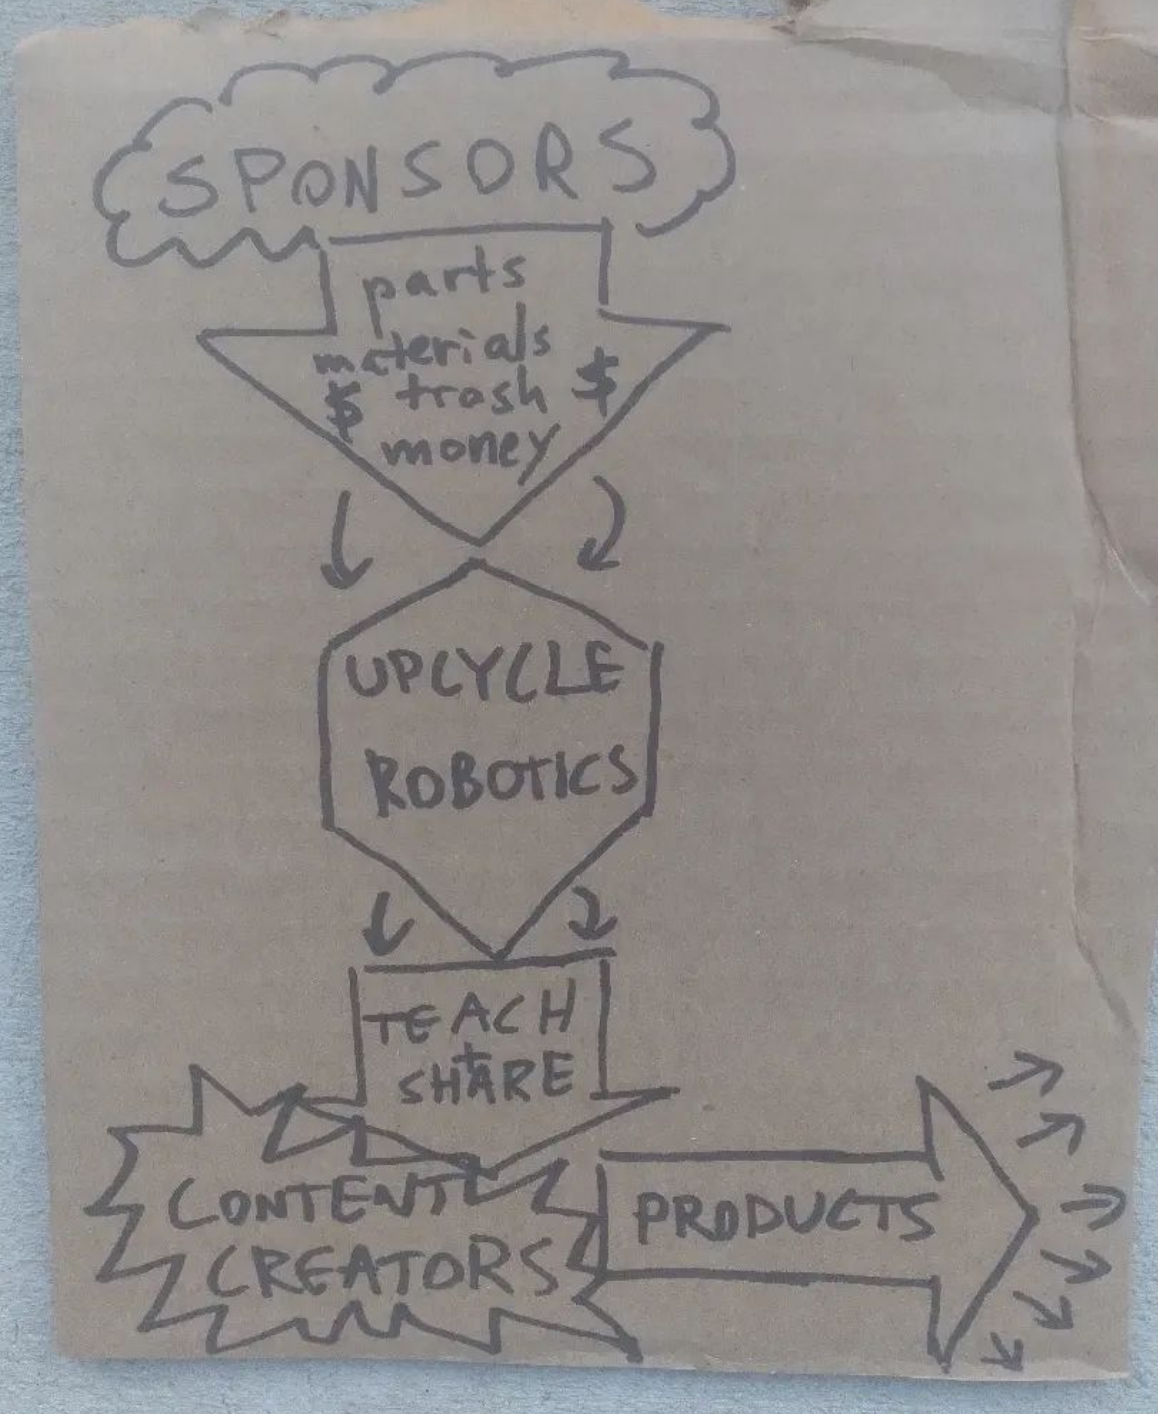 SPONSORS
parts
materials
$ trash $
money
UPCYCLE
ROBOTICS
TEACH
+
SHARE
CONTENT
CREATORS
PRODUCTS